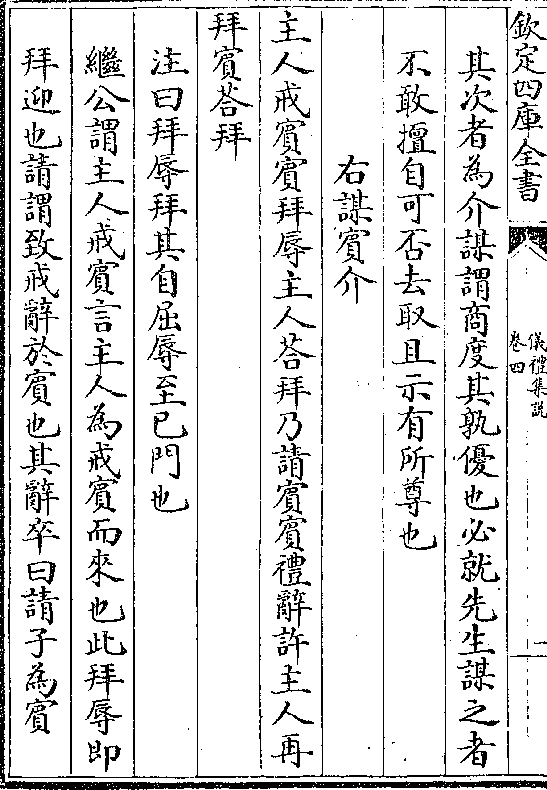 欽定四庫全書
儀禮集説
卷四
其次者為介謀謂商度其孰優也必就先生謀之者
不敢擅自可否去取且示有所尊也
右謀賓介
主人戒賓賓拜辱主人荅拜乃請賓賓禮辭許主人再
拜賓荅拜
注曰拜辱拜其自屈辱至已門也
繼公謂主人戒賓言主人為戒賓而來也此拜辱即
拜迎也請謂致戒辭於賓也其辭卒曰請子為賓